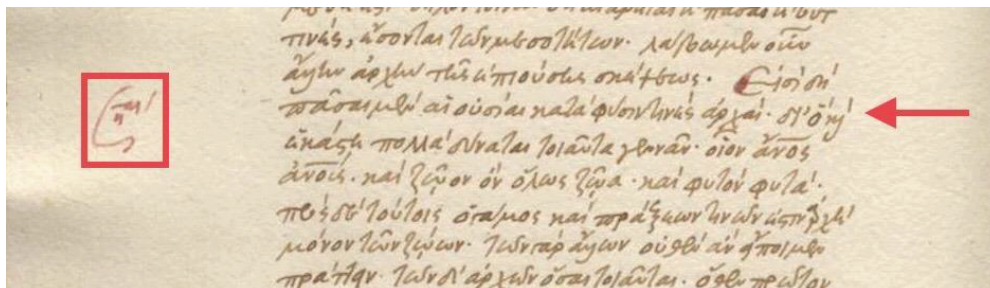 τινὲς, ἔσονται τῶν μεσοτήτων· λάβωμεν οὖν
ἄλλην ἀρχὴν τῆς ἐπιούσης σκέψεως. Εἰσὶ δὴ
πᾶσαι μὲν αἱ οὐσίαι κατὰ φύσιν τινὲς ἀρχαί· δι' ὃ καὶ
ἑκάστη πολλὰ δύναται τοιαῦτα γεννᾶν· οἷον ἄνος
ἀνοις· καὶ ζῶον ὂν ὅλως ζῶα· καὶ φυτὸν φυτά·
πρὸς δὲ τούτοις καὶ πράξεων τινῶν ἐστιν ἀρχὴ
μόνον τῶν ζώων· τῶν γὰρ ἄλλων οὐθὲν ἂν εἴποιμεν
πράττειν· τῶν δ' ἀρχῶν ὅσαι τοιαῦται· ὅθεν πρῶτον